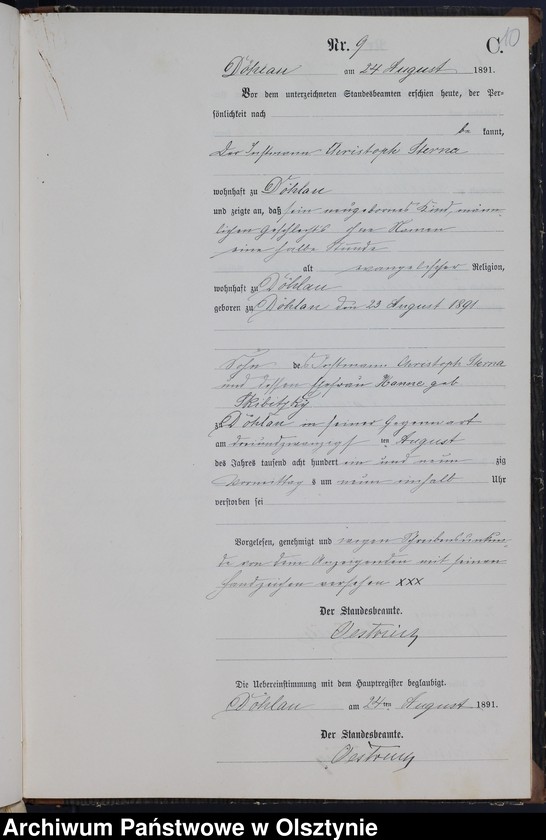 Nr. 9
C.
10
Döhlau am 24 August 1891.
Vor dem unterzeichneten Standesbeamten erschien heute, der Per-
sönlichkeit nach
be kannt,
Der Instmann Christoph Sterna
wohnhaft zu Döhlau
und zeigte an, daß sein neugebornes Kind männ-
lichen Geschlechts ohne Namen
eine halbe Stunde
alt evangelischer Religion,
wohnhaft zu Döhlau
geboren zu Döhlau den 23 August 1891
Sohn des Instmann Christoph Sterna
und dessen Ehefrau Hanne geb.
Skibitzky
zu Döhlau in seiner Gegenwart
am dreiundzwanzigs ten August
des Jahres tausend acht hundert ein und neun zig
Vormittag s um neun einhalb Uhr
verstorben sei
Vorgelesen, genehmigt und wegen Schreibensunkun-
de von dem Anzeigenden mit seinen
Handzeichen versehen xxx
Der Standesbeamte.
Oestreich
Die Uebereinstimmung mit dem Hauptregister beglaubigt.
Döhlau am 24ten August 1891.
Der Standesbeamte.
Oestreich
Archiwum Państwowe w Olsztynie